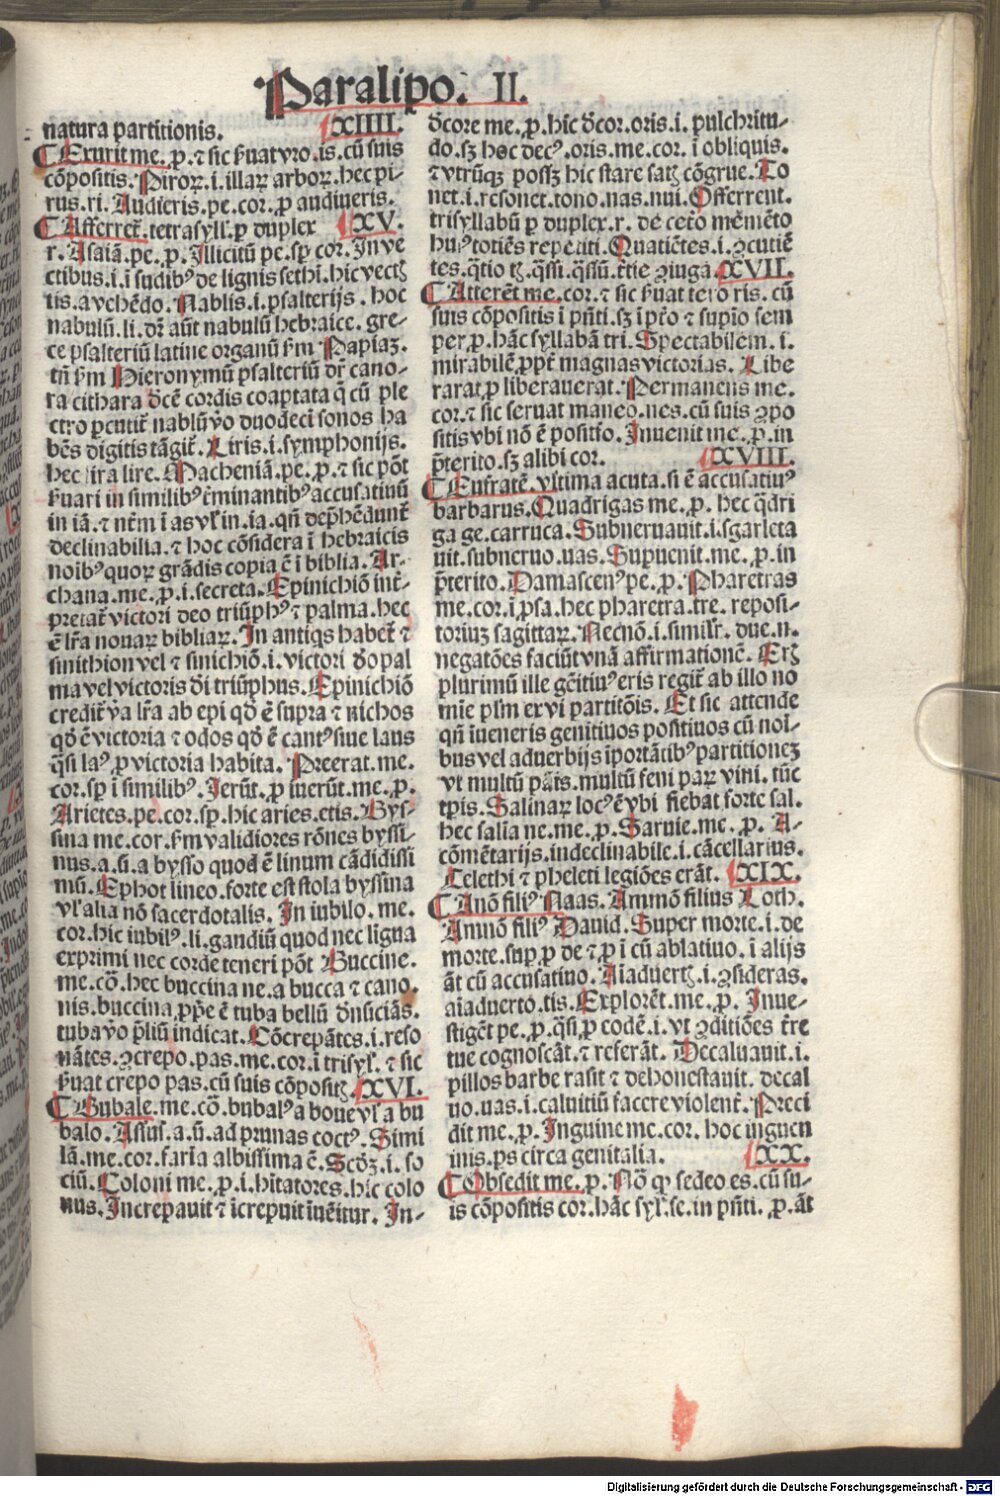 Paralipo. II.
natura partitionis. XIIII.
Exurit me. ꝓ. ⁊ sic ẜuat vro. is. cū suis
cōpositis. Piroꝝ. i. illaꝝ arboꝝ. hec pi-
rus. ri. Audieris. pe. cor. ꝓ audiueris.
Afferret̄. tetrasyll'. ꝑ duplex XV.
r. Asaiā. pe. ꝓ. Illicitū pe. sꝑ cor. In ve
ctibus. i. ī sudibꝰ de lignis sethī. hic vectꝭ
tis. a vehēdo. Nablis. i. psalterijs. hoc
nabulū. li. dr̄ aūt nabulū hebraice. gre-
ce psalteriū latine organū ẜm Papiaꝫ.
tn̄ ẜm Hieronymū psalteriū dr̄ cano-
ra cithara d̄cē cordis coaptata q̄ cū ple
ctro ꝑcutit̄ nablū v̄o duodecī sonos ha
bēs digitis tāgit̄. Liris. i. symphonijs.
hec lira lire. Macheniā. pe. ꝓ. ⁊ sic pōt
ẜuari in similibꝰ t̄minantibꝰ accusatinū
in iā. ⁊ nt̄m ī as vl' in. ia. qn̄ dep̄hēdunt̄
declinabilia. ⁊ hoc cōsidera ī hebraicis
noībꝰ quoꝝ grādis copia ē ī biblia. Ar-
chana. me. ꝓ. i. secreta. Epinichiō int̄-
pretat̄ victori deo triūphꝰ ⁊ palma. hec
ē lr̄a nouaꝝ bibliaꝝ. In antiqs habet̄ ⁊
sinithion vel ⁊ sinichiō. i. victori d̄o pal
ma vel victoris d̄i triūphus. Epinichiō
credit̄ v̄a lr̄a ab epi qd̄ ē supra ⁊ nichos
qd̄ ē victoria ⁊ odos qd̄ ē cantꝰ siue laus
q̄si laꝰ ꝓ victoria habita. Preerat. me.
cor. sꝑ ī similibꝰ. Ierūt. ꝓ iuerūt. me. ꝓ.
Arietes. pe. cor. sꝑ. hic aries. etis. Bys-
sina me. cor. ẜm validiores rōnes byssi-
nus. a. ū. a bysso quod ē linum cādidissi
mū. Ephot lineo. forte est stola byssina
vl' alia nō sacerdotalis. In iubilo. me.
cor. hic iubilꝰ. li. gandiū quod nec ligua
exprimi nec corde teneri pōt Buccine.
me. cō. hec buccina ne. a bucca ⁊ cano.
nis. buccina, ꝓp̄e ē tuba bellū d̄nūciās.
tuba v̄o p̄liū indicat. Cōcrepātes. i. reso
nātes. ꝯcrepo. pas. me. cor. ī trisyl'. ⁊ sic
ẜuat crepo pas. cū suis cōpositꝭ. XVI.
Bubale. me. cō. bubalꝰ a boue vl' a bu
balo. Assus. a. ū. ad prunas coctꝰ. Simi
lā. me. cor. faria albissima ē. Scdꝫ. i. so
ciū. Coloni me. ꝓ. i. hītatores. hic colo
nus. Increpauit ⁊ īcrepuit īuēitur. In-
d̄core me. ꝓ. hic d̄cor. oris. i. pulchritu-
do. sꝫ hoc decꝰ. oris. me. cor. ī obliquis.
⁊ vtrūqꝫ possꝫ hic stare satꝭ cōgrue. To
net. i. resonet. tono. nas. nui. Offerrent.
trisyllabū ꝑ duplex. r. de cet̄o mēmēto
huiꝰ totiēs repetiti. Quatiētes. i. ꝯcutiē
tes. q̄tio tꝭ. q̄ssi. q̄ssū. t̄tie ꝯiuga. XVII.
Atterēt me. cor. ⁊ sic ẜuat tero ris. cū
suis cōpositis ī pn̄ti. sꝫ ī pt̄o ⁊ supīo sem
per, ꝓ. hāc syllabā tri. Spectabilem. i.
mirabilē, ꝓpt̄ magnas victorias. Libe
rarat, ꝓ liberauerat. Permanens me.
cor. ⁊ sic seruat maneo. nes. cū suis ꝯpo
sitis vbi nō ē positio. Inuenit me. ꝓ. in
p̄terito. sꝫ alibi cor. XVIII.
Eufratē. vltima acuta. si ē accusatiuꝰ
barbarus. Quadrigas me. ꝓ. hec q̄dri
ga ge. carruca. Subneruauit. i. sgarleta
uit. subneruo. uas. Supuenit. me. ꝓ. in
p̄terito. Damascenꝰ pe. ꝓ. Pharetras
me. cor. ī ꝓsa. hec pharetra. tre. reposi-
toriuꝫ sagittaꝝ. Necnō. i. simil'r. due. n.
negatōes faciūt vnā affirmationē. Erꝭ
plurimū ille gēitiuꝰ eris regit̄ ab illo no
mīe plm̄ ex vi partitōis. Et sic attende
qn̄ īueneris genitiuos positiuos cū noī-
bus vel aduerbijs īportātibꝰ partitioneꝫ
vt multū pāis. multū feni paꝝ vini. tūc
tp̄is. Salinaꝝ locꝰ ē vbi fiebat forte sal.
hec salia ne. me. ꝓ. Saruie. me. ꝓ. A-
cōmētarijs. indeclinabile. i. cācellarius.
Celethi ⁊ pheleti legiōes erāt. XIX.
Anō filiꝰ Naas. Ammō filius Loth.
Amnō filiꝰ Dauid. Super morte. i. de
morte. suꝑ, ꝑ de ⁊ ꝓ ī cū ablatiuo. ī alijs
āt cū accusatiuo. Aīaduertꝭ. i. ꝯsideras.
aīaduerto. tis. Explorēt. me. ꝓ. Inue-
stigēt pe. ꝓ. q̄si, ꝓ eodē. i. vt ꝯditiōes t̄re
tue cognoscāt. ⁊ referāt. Decaluauit. i.
pillos barbe rasit ⁊ dehonestauit. decal
uo. uas. i. caluitiū facere violent̄. Preci
dit me. ꝓ. Inguine me. cor. hoc inguen
inis. ps circa genitalia. XX.
Obsedit me. ꝓ. Nō qꝫ sedeo es. cū su-
is cōpositis cor. hāc syl'. se. in pn̄ti. ꝓ. āt
Digitalisierung gefördert durch die Deutsche Forschungsgemeinschaft - DFG